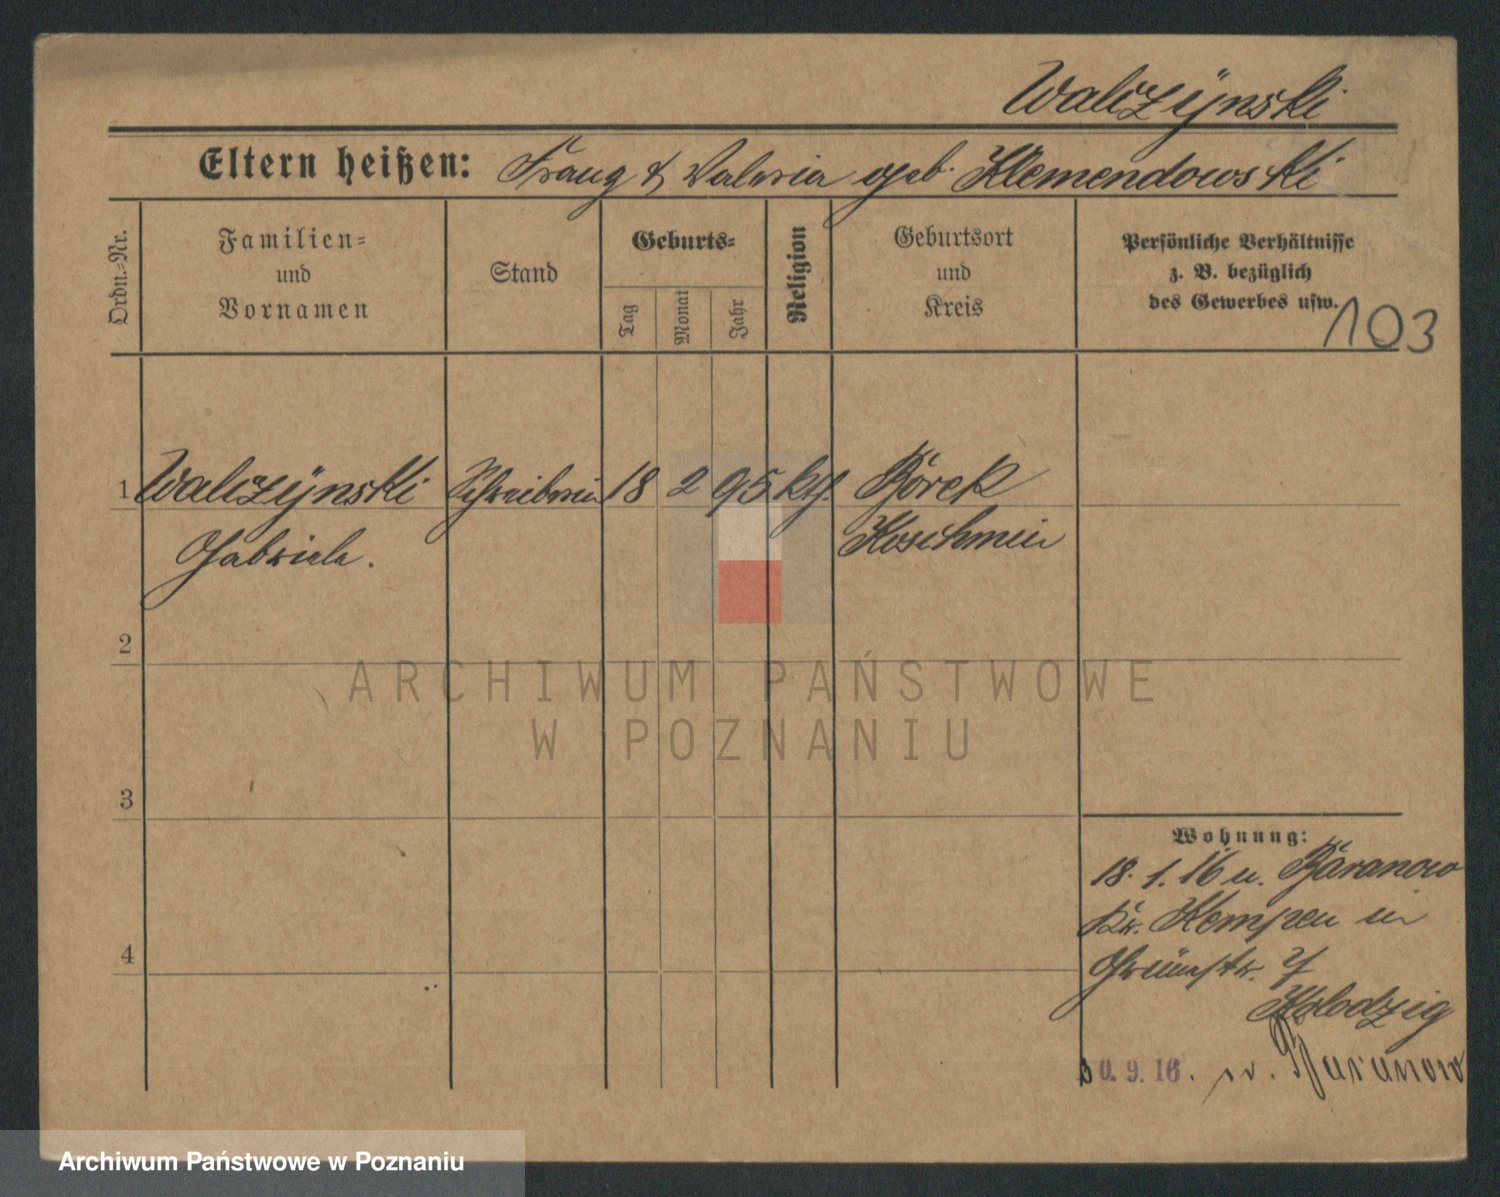 Walczÿnski
Eltern heißen: Franz & Valeria geb. Klemendowski
Ordn.-Nr.
Familien-
und
Vornamen
Stand
Geburts-
Tag
Monat
Jahr
Religion
Geburtsort
und
Kreis
Persönliche Verhältnisse
z. B. bezüglich
des Gewerbes usw.
103
1 Walczÿnski Schreiberin 18 2 95 kth. Borek
Gabriele. Koschmin
2
3
4
Wohnung:
18. 1. 16 u. Baranow
Kr. Kempen in
Grünstr. 7
Kolodzig
30. 9. 16. n. Baranow
ARCHIWUM PAŃSTWOWE
W POZNANIU
Archiwum Państwowe w Poznaniu